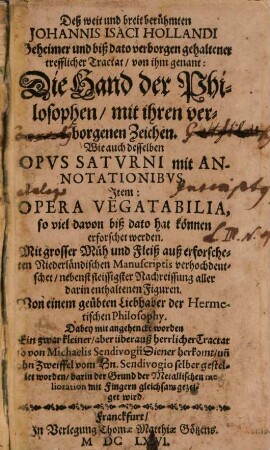 Deß weit und breit berühmten
JOHANNIS ISACI HOLLANDI
Geheimer und biß dato verborgen gehaltener
trefflicher Tractat / von ihm genant:
Die Hand der Phi-
losophen / mit ihren ver-
borgenen Zeichen.
Wie auch desselben
OPVS SATVRNI mit AN-
NOTATIONIBVS,
Item:
OPERA VEGATABILIA,
so viel davon biß dato hat können
erforschet werden.
Mit grosser Müh und Fleiß auß erforsche-
ten Niederländischen Manuscriptis verhochdeut-
schet / nebenst fleissigster Nachreisung aller
darin enthaltenen Figuren.
Von einem geübten Liebhaber der Herme-
tischen Philosophy.
Dabey mit angehenckt worden
Ein zwar kleiner / aber überauß herrlicher Tractat
so von Michaelis Sendivogii Diener herkomt / uñ
ohn Zweiffel vom Hn. Sendivogio selber gestel-
let worden / darin der Grund der Metallischen me-
lioration mit Fingern gleichsam gezei-
get wird.
Franckfurt /
In Verlegung Thomæ Matthiæ Götzens.
M DC LXVI.